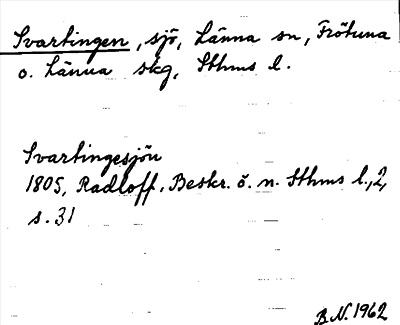 Svartingen, sjö, Länna sn, Frötuna
o. Länna skg, Sthms l.
Svartingesjön
1805, Radloff, Beskr. ö. n. Sthms l., 2,
s. 31
B.N. 1962